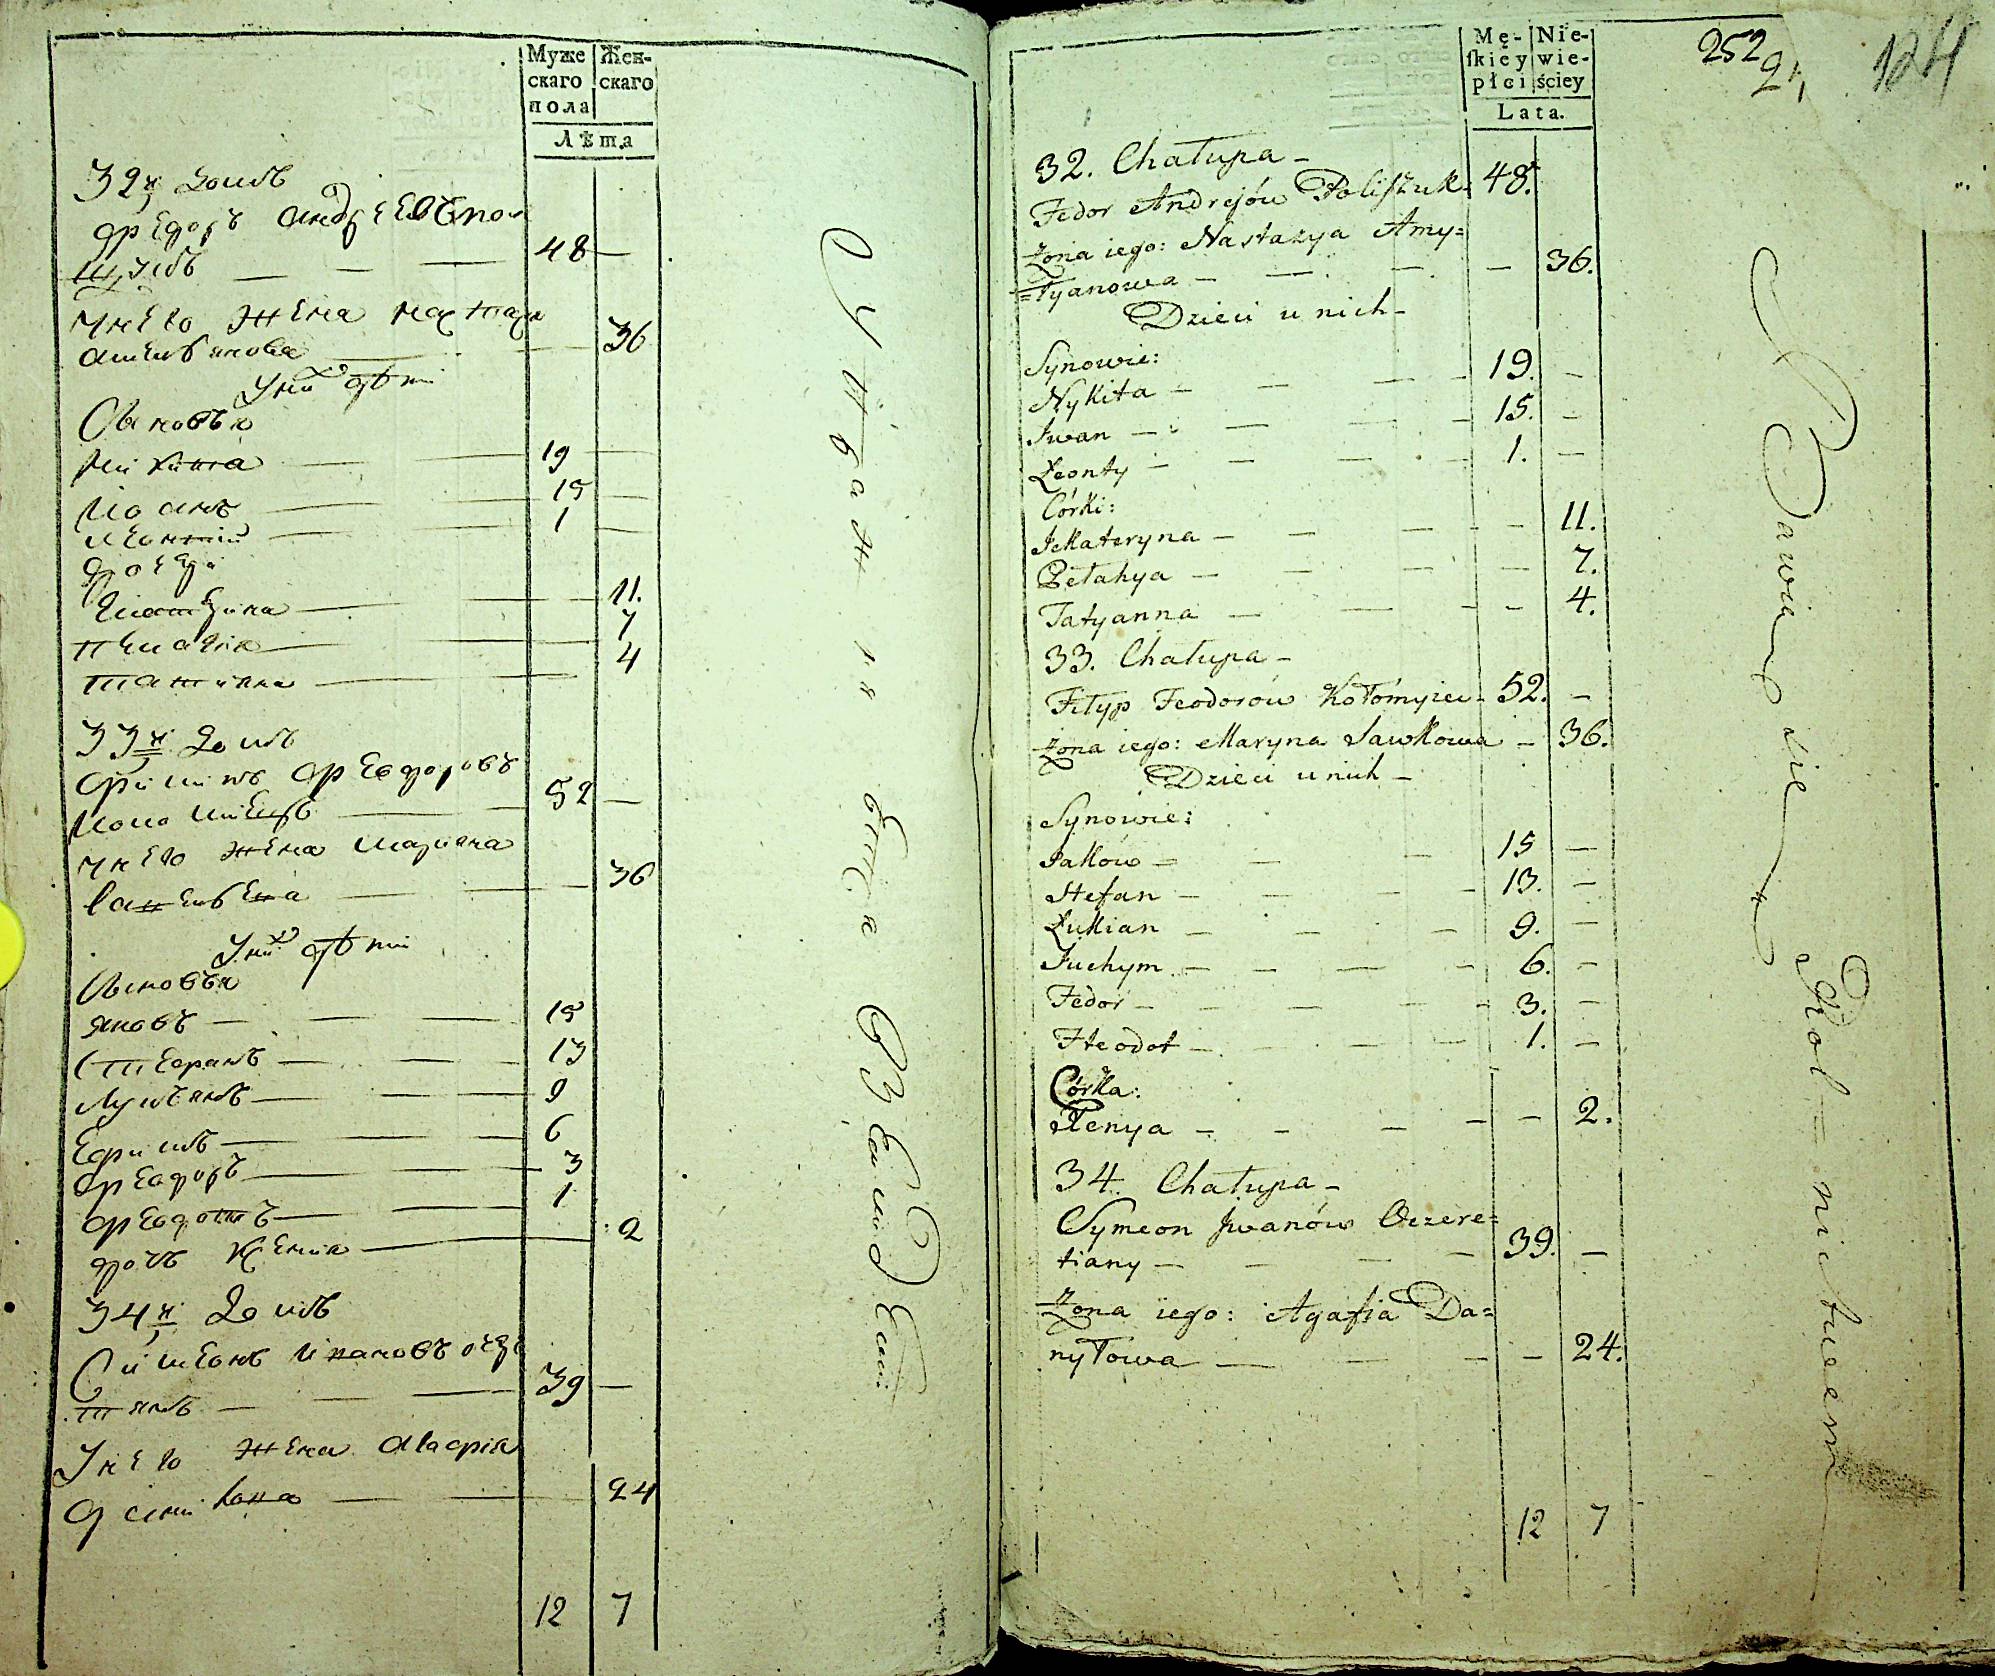 Муже
скаго
пола
Жен-
скаго
Лѣта
32й домъ
Федоръ Андреевъ Пол
щукъ — — — 48 —
у него жена Настася
Амельянова — — 36
У них дѣти
Сыновья
Никита — — 19 —
Иванъ — — 15 —
Леонтій — — 1 —
дочери
Екатерина — — 11.
Пелагія — — 7
Татіяна — — 4
33й домъ
Филипъ Феодоровъ
Коломіецъ — — 52 —
у него жена Марина
Савкова — — 36
У них дѣти
Сыновья
Яковъ — — — 15
Стефанъ — — — 13
Лукьянъ — — — 9
Ефимъ — — — 6
Феодоръ — — — 3
Феодотъ — — — 1
дочь Ксенія — — : 2
34й домъ
Симеонъ Ивановъ очере
тянъ — — — 39 —
У него жена Агафія
Данилова — — 24
12 7
Мę-
ſkiey
płci
Nie-
wie-
ściey
Lata.
252
124
32. Chałupa —
Fedor Andrejów Poliſzuk — 48.
Żona iego: Nastazya Amy=
=łyanowa — — — — 36.
Dzieci u nich —
Synowie:
Nykita — — — — 19. —
Iwan — — — — 15. —
Łeonty — — — — 1. —
Córki:
Jekateryna — — — — 11.
Pełahya — — — — 7.
Tatyanna — — — — 4.
33. Chałupa —
Fityp Teodorów Kołómyiec — 52. —
Żona iego: Maryna Sawkowa — 36.
Dzieci u nich —
Synowie:
Jaków — — — 15 —
Stefan — — — — 13. —
Łukian — — — — 9. —
Juchym — — — — 6. —
Fedor — — — — 3. —
Fteodot — — — — 1. —
Córka:
Xenya — — — — — 2.
34. Chałupa —
Symeon Jwanów Oczere=
tiany — — — — 39. —
Żona iego: Agafia Da=
nyłowa — — — — 24.
12 7
Bawią się
Rol=nictwem